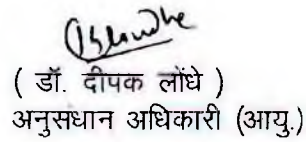 ( डॉ. दीपक लोंधे )
अनुसधान अधिकारी (आयु.)